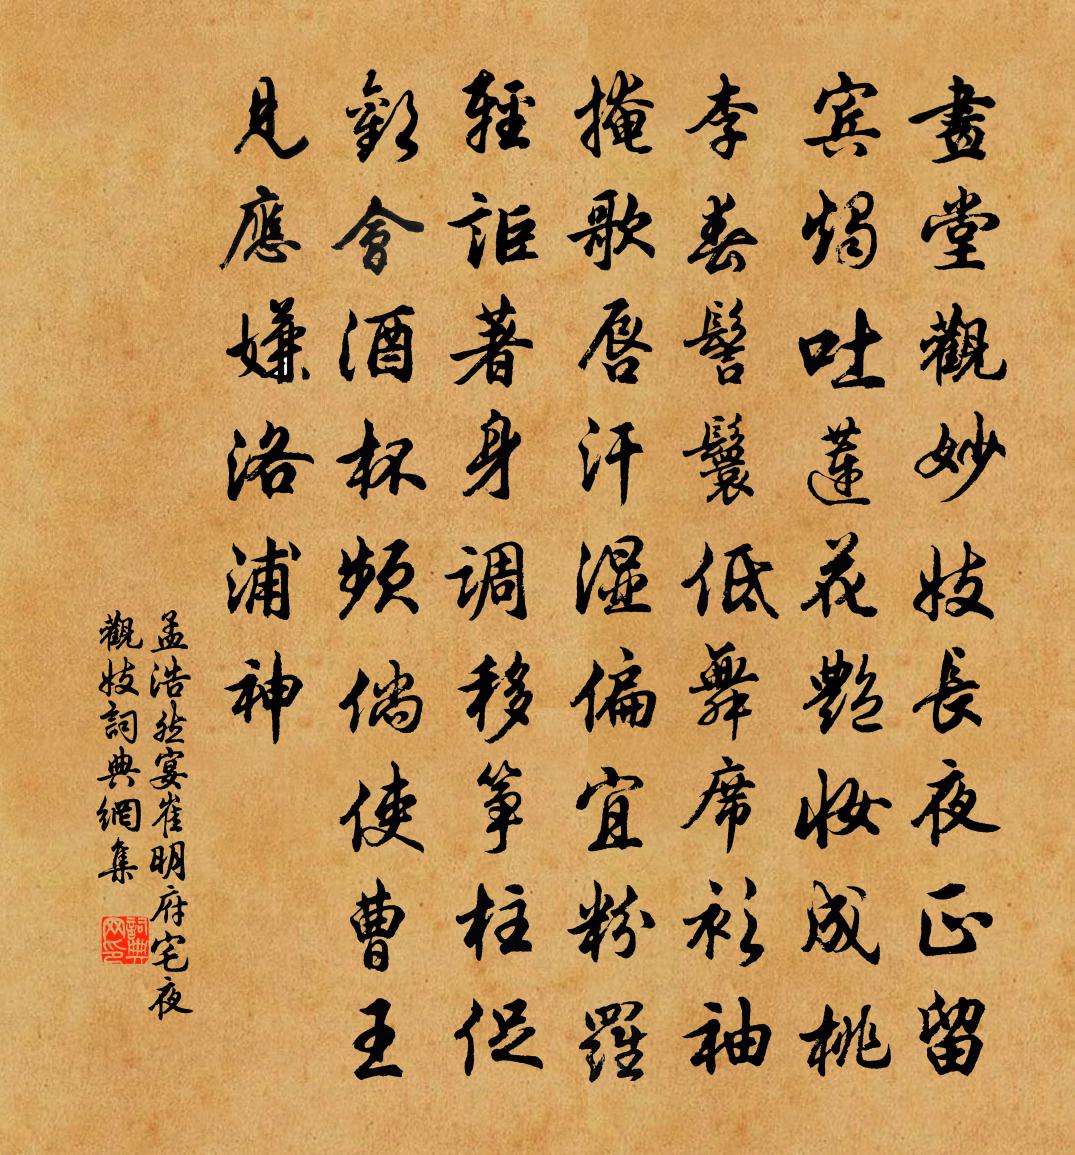 畫堂觀妙妓長夜正留
宾燭吐蓮花艷妝成桃
李春髻鬟低舞席衫袖
掩歌唇汗湿偏宜粉羅
輕詎著身調移箏柱促
歡會酒杯頻倘使曹王
見應嫌洛浦神
孟浩然宴崔明府宅夜
觀妓詞典網集
詞典
网印